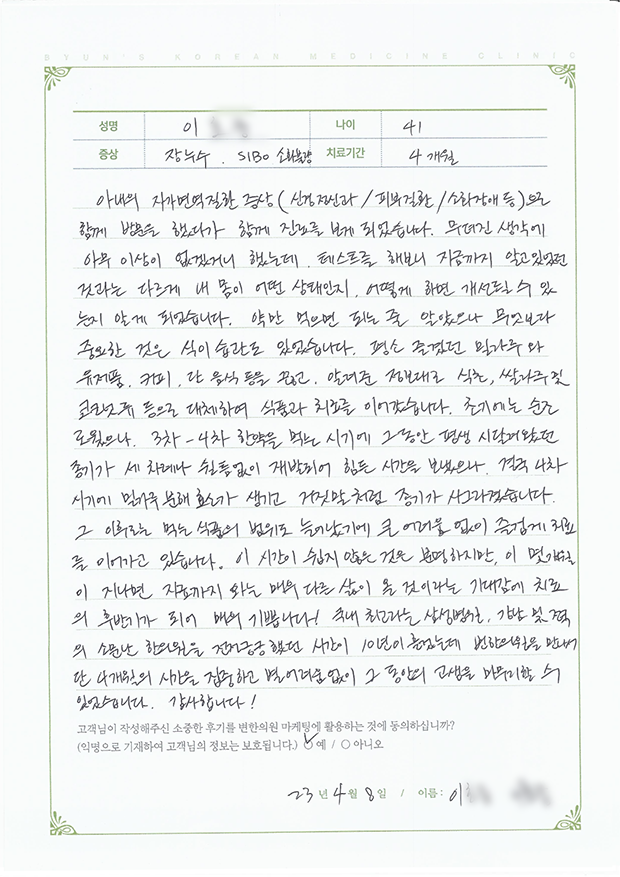 BYUN'S KOREAN MEDICINE CLINIC
성명 이 나이 41
증상 장누수, SIBO 소화불량 치료기간 4 개월
아내의 자가면역질환 증상 (신경정신과 / 피부질환 / 소화장애 등) 으로
함께 방문을 했다가 함께 진료를 보게 되었습니다. 무뎌진 생각에
아무 이상이 없겠거니 했는데, 테스트를 해보니 지금까지 알고있었던
것과는 다르게 내 몸이 어떤 상태인지, 어떻게 하면 개선될 수 있
는지 알게 되었습니다. 약만 먹으면 되는 줄 알았으나 무엇보다
중요한 것은 식이 습관도 있었습니다. 평소 즐겼던 밀가루와
유제품, 커피, 단 음식 등을 끊고, 알려준 정보대로 식초, 쌀가루 및
코코넛류 등으로 대체하여 식품과 치료를 이어갔습니다. 초기에는 순조
로웠으나, 3차-4차 한약을 먹는 시기에 그동안 평생 시달려왔던
종기가 세 차례나 쉴틈없이 재발되어 힘든 시간을 보냈으나, 결국 4차
시기에 밀가루 분해 효소가 생기고 거짓말처럼 종기가 사그라졌습니다.
그 이후로는 먹는 식품의 범위도 늘어났기에 큰 어려움 없이 즐겁게 치료
를 이어가고 있습니다. 이 시간이 쉽지 않은 것은 분명하지만, 이 몇개월
이 지나면 지금까지 와는 매우 다른 삶이 올 것이라는 기대감에 치료
의 후반기가 되어 매우 기쁩니다! 국내 최고라는 삼성병원, 강남 및 전국
의 소문난 한의원을 전전긍긍했던 시간이 10년이 흘렀는데 변한의원을 만나
단 4개월의 시간을 집중하고 별 어려움없이 그 동안의 고생을 마무리할 수
있었습니다. 감사합니다!
고객님이 작성해주신 소중한 후기를 변한의원 마케팅에 활용하는 것에 동의하십니까?
(익명으로 기재하여 고객님의 정보는 보호됩니다.) 예 / 아니오
23 년 4 월 8 일 / 이름 : 이